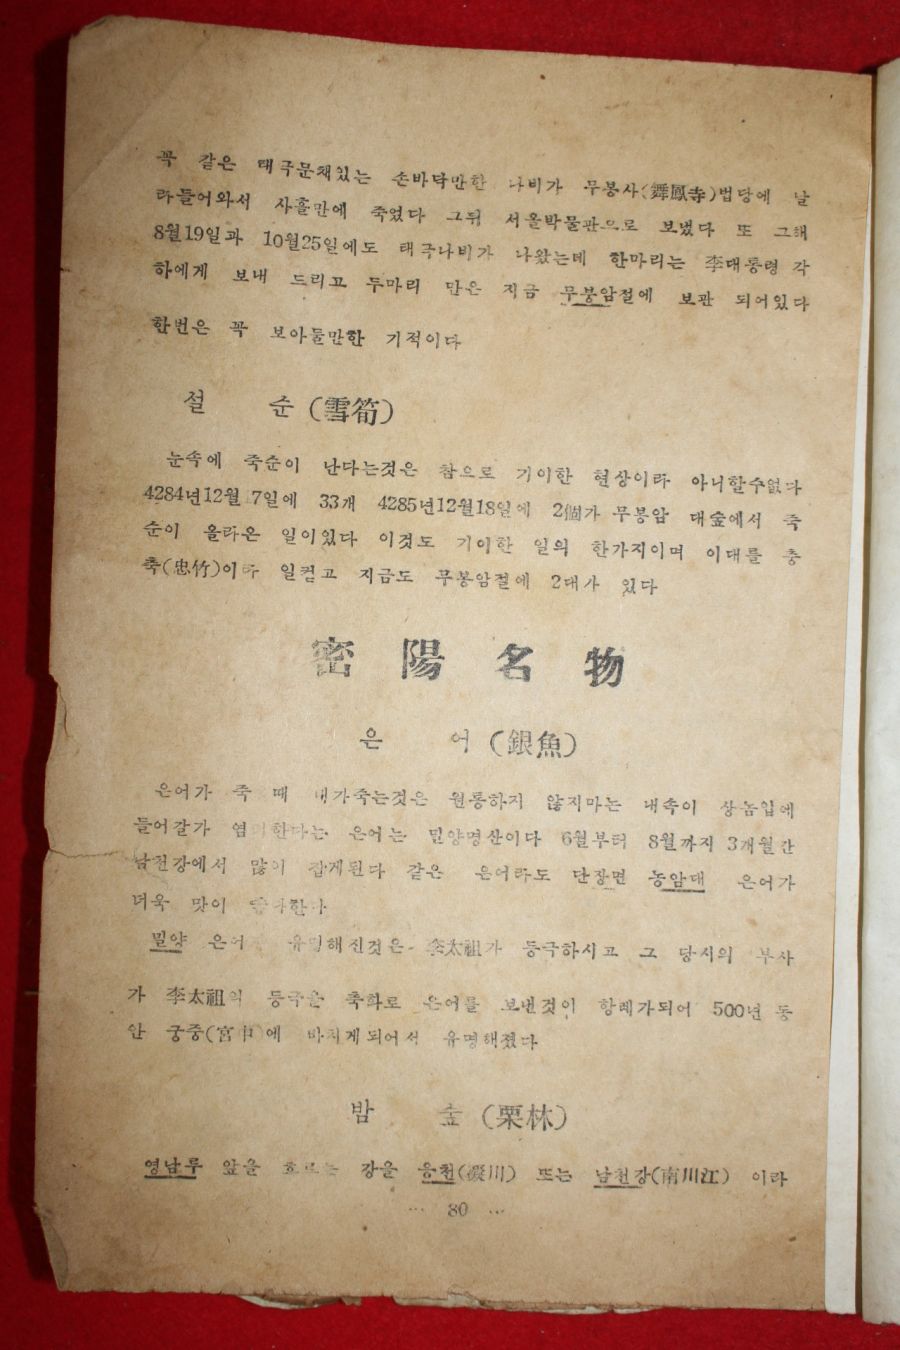 꼭 같은 태극문채있는 손바닥만한 나비가 무봉사(舞鳳寺)법당에 날
라들어와서 사흘만에 죽었다 그뒤 서울박물관으로 보냈다 또 그해
8월19일과 10월25일에도 태극나비가 나왔는데 한마리는 李대통령 각
하에게 보내 드리고 두마리 만은 지금 무봉암절에 보관 되어있다
한번은 꼭 보아둘만한 기적이다
설 순 (雪筍)
눈속에 죽순이 난다는것은 참으로 기이한 현상이라 아니할수없다
4284년12월 7일에 33개 4285년12월18일에 2個가 무봉암 대숲에서 죽
순이 올라온 일이있다 이것도 기이한 일의 한가지이며 이대를 충
축(忠竹)이라 일컫고 지금도 무봉암절에 2대가 있다
密陽名物
은 어 (銀魚)
은어가 죽 때 내가죽는것은 원통하지 않지마는 내속이 상놈입에
들어갈가 한다는 은어는 밀양명산이다 6월부터 8월까지 3개월간
남천강에서 많이 잡게된다 같은 은어라도 단장면 농암대 은어가
더욱 맛이
밀양 은어 유명해진것은 李太祖가 등극하시고 그 당시의 부사
가 李太祖의 등극을 축하로 은어를 보낸것이 항례가되어 500년 동
안 궁중(宮中)에 바치게되어서 유명해졌다
밤 숲 (栗林)
영남루 앞을 흐르는 강을 응천(凝川) 또는 남천강(南川江) 이라
… 80 …